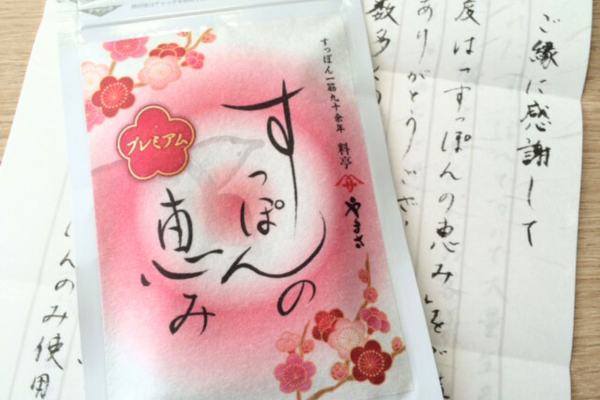 すっぽん一筋九十余年
料亭
やまさ
プレミアム
すっぽんの
恵み
ご縁に感謝して
度は「すっぽんの恵み」をご
ありがとうござ
数多く
んのみ使用